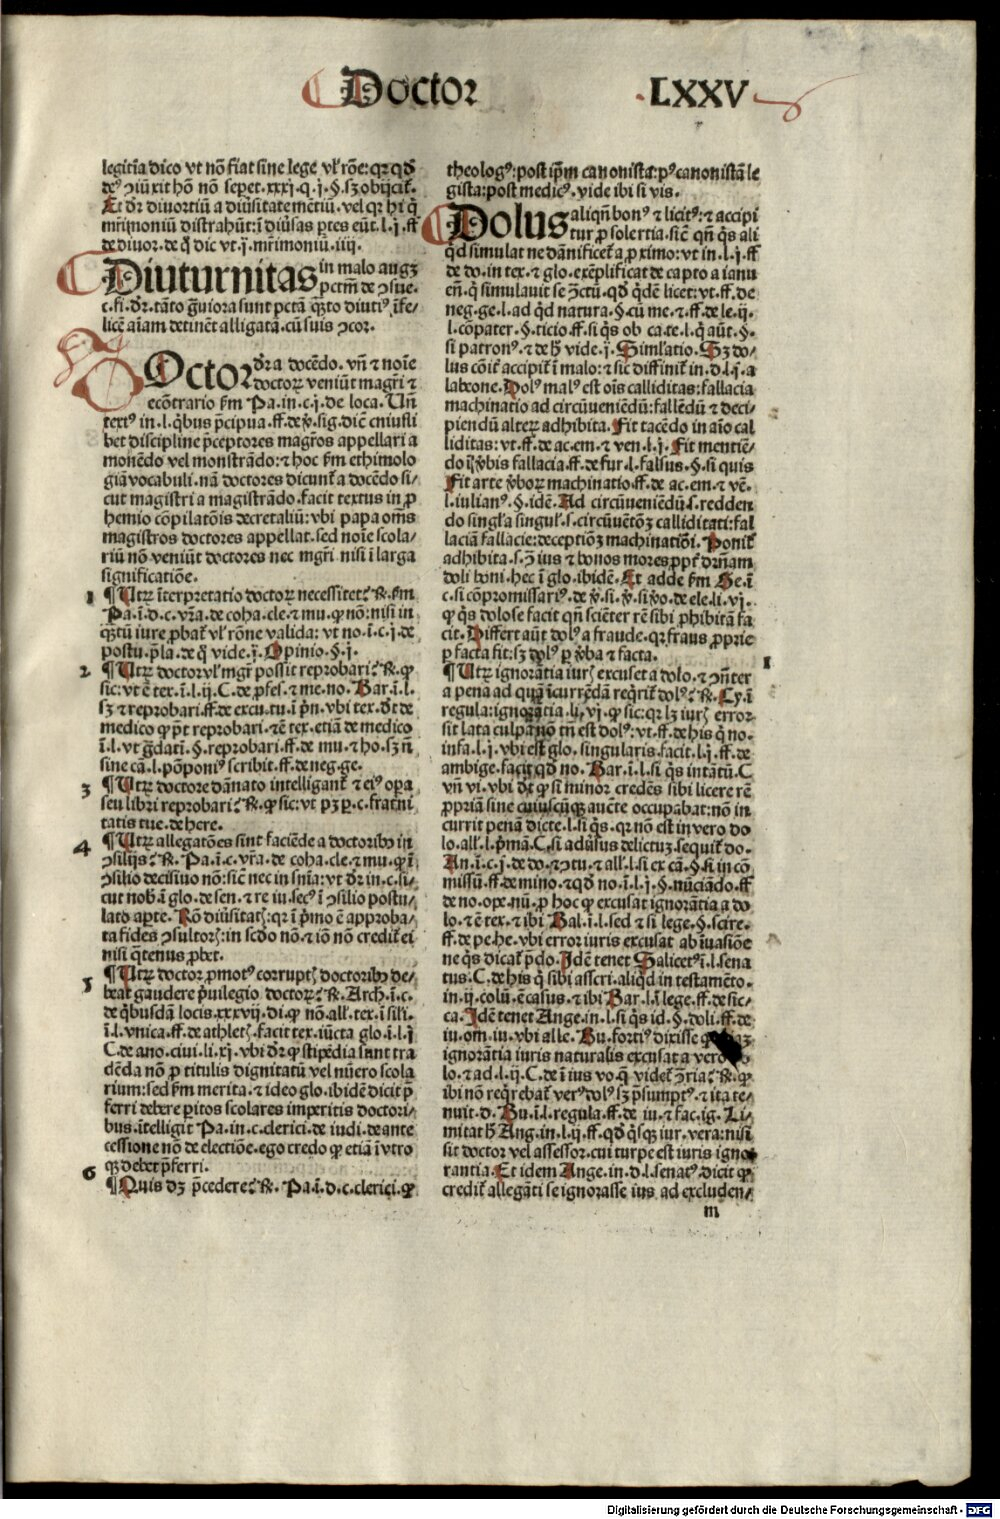 Doctor
LXXV
legitīa dico vt nō fiat sine lege vl' rōe: qꝛ qd̄
deꝰ ꝯiūxit hō nō sepet. xxxj. q. j. §. sꝫ obijcit̄.
Et dr̄ diuortiū a diūsitate mētiū. vel qꝛ hi q̄
mr̄imoniū distrahūt: ī diūsas ptes eūt. l. j. ff
de diuor. de q̄ dic vt. j. mr̄imoniū. iiij.
Diuturnitas in malo augꝫ
pctm̄ de ꝯsue.
c. fi. dr̄. tāto ḡuiora sunt pctā q̄ꝫto diutiꝰ īfe/
licē aīam detinēt alligatā. cū suis ꝯcor.
Octor dr̄ a docēdo. vn̄ ⁊ noīe
doctoꝝ veniūt magr̄i ⁊
ecōtrario fm̄ Pa. in. c. j. de loca. Un̄
textꝰ in. l. q̄bus p̄cipua. ff. de ꝟ. sig. dicē cuiusli
bet discipline p̄ceptores magr̄os appellari a
monēdo vel monstrādo: ⁊ hoc fm̄ ethimolo
giā vocabuli. nā doctores dicunt̄ a docēdo si/
cut magistri a magistrādo. facit textus in ꝓ
hemio cōpilatōis decretaliū: vbi papa om̄s
magistros doctores appellat. sed noīe scola/
riū nō veniūt doctores nec mgr̄i nisi ī larga
significatiōe.
1 ¶ Utꝝ īterpretatio doctoꝝ necessitet? ℞. fm̄
Pa. ī. d. c. vr̄a. de coha. cle. ⁊ mu. ꝙ nō: nisi in
q̄ꝫtū iure ꝓbat̄ vl' rōne valida: vt no. ī. c. j. de
postu. p̄la. de q̄ vide. j. Opinio. §. j.
2 ¶ Utꝝ doctor vl' mgr̄ possit reprobari? ℞. ꝙ
sic: vt ē tex. ī. l. ij. C. de ꝓfes. ⁊ me. no. Bar. ī. l.
sꝫ ⁊ reprobari. ff. de excu. tu. ī pn̄. vbi tex. dt̄ de
medico ꝙ pt̄ reprobari. ⁊ ē tex. etiā de medico
ī. l. vt ḡdati. §. reprobari. ff. de mu. ⁊ ho. sꝫ n̄
sine cā. l. pōponiꝰ scribit. ff. de neg. ge.
3 ¶ Utꝝ doctore dānato intelligant̄ ⁊ eiꝰ opa
seu libri reprobari? ℞. ꝙ sic: vt pꝫ p. c. frat̄ni
tatis tue. de here.
4 ¶ Utꝝ allegatōes sint faciēde a doctoribꝰ in
ꝯsilijs? ℞. Pa. ī. c. vr̄a. de coha. cle. ⁊ mu. ꝙ ī
ꝯsilio decisiuo nō: sic̄ nec in sn̄ia: vt dr̄ in. c. si/
cut nob̄. ī glo. de sen. ⁊ re iu. secꝰ ī ꝯsilio postu/
lato apte. Rō diūsitatꝭ: qꝛ ī p̄mo ē approba/
ta fides ꝯsultorꝭ: in scdo nō. ⁊ iō nō credit̄ ei
nisi q̄tenus ꝓbet.
5 ¶ Utꝝ doctor ꝓmotꝰ corruptꝭ doctoribꝰ de/
beat gaudere p̄uilegio doctoꝝ? ℞. Arch. ī. c.
de q̄busdā locis. xxxvij. di. ꝙ nō. all'. tex. ī sili.
ī. l. vnica. ff. de athletꝭ. facit tex. iūcta glo. ī. l. j
C. de ano. ciui. li. xj. vbi dr̄ ꝙ stipēdia sunt tra
dēda nō ꝓ titulis dignitatū vel nūero scola
rium: sed fm̄ merita. ⁊ ideo glo. ibidē dicit p̄
ferri debere pitos scolares imperitis doctori/
bus. ītelligit Pa. in. c. clerici. de iudi. de ante
cessione nō de electiōe. ego credo ꝙ etiā ī vtro
qꝫ debet p̄ferri.
6 ¶ Quis dꝫ p̄cedere? ℞. Pa. ī. d. c. clerici. ꝙ
theologꝰ: post ipm̄ canonista: pꝰ canonistā le
gista: post medicꝰ. vide ibi si vis.
Dolus aliqn̄ bonꝰ ⁊ licitꝰ: ⁊ accipi
tur ꝓ solertia. sic̄ qn̄ q̄s ali
q̄d simulat ne dānificet̄ a ꝓximo: vt in. l. j. ff
de do. in tex. ⁊ glo. exēplificat de capto a ianu
en̄. q̄ simulauit se ꝯctū. qd̄ q̄dē licet: vt. ff. de
neg. ge. l. ad q̄d natura. §. cū me. ⁊. ff. de le. ij.
l. cōpater. §. ticio. ff. si q̄s ob ca. te. l. q̄ aūt. §.
si patronꝰ. ⁊ de h̄ vide. j. Simulatio. Sꝫ do/
lus cōit̄ accipit̄ ī malo: ⁊ sic diffinit̄ in. d. l. j. a
labeone. Dolꝰ malꝰ est ois calliditas: fallacia
machinatio ad circūueniēdū: fallēdū ⁊ deci/
piendū alteꝝ adhibita. Fit tacēdo in aīo cal
liditas: vt. ff. de ac. em. ⁊ ven. l. j. Fit mentiē/
do ī ꝟbis fallacia. ff. de fur. l. falsus. §. si quis
Fit arte ꝟboꝝ machinatio. ff. de ac. em. ⁊ vē.
l. iulianꝰ. §. idē. Ad circūueniēdū. s. redden
do singl'a singul'. s. circūuētōꝫ calliditati: fal
laciā fallacie: deceptiōꝫ machinatiōi. Ponit̄
adhibita. s. ꝯ ius ⁊ bonos mores ꝓpt̄ drn̄am
doli boni. hec ī glo. ibidē. Et adde fm̄ Ge. ī
c. si cōpromissariꝰ. de ꝟ. si. ꝟ. si ꝟo. de ele. li. vj.
ꝙ q̄s dolose facit qn̄ sciēter rē sibi ꝓhibitā fa
cit. Differt aūt dolꝰ a fraude. qꝛ fraus ꝓprie
p facta fit: sꝫ dolꝰ p ꝟba ⁊ facta.
1 ¶ Utꝝ ignorātia iurꝭ excuset a dolo. ⁊ ꝯn̄ter
a pena ad quā īcurrēdā req̄rit̄ dolꝰ? ℞. Cy. ī
regula: ignorātia. li. vj. ꝙ sic: qꝛ lꝫ iurꝭ error
sit lata culpa nō tn̄ est dolꝰ: vt. ff. de his q̄ no.
infa. l. j. vbi est glo. singularis. facit. l. j. ff. de
ambige. facit qd̄ no. Bar. ī. l. si q̄s in tātū. C
vn̄ vi. vbi dt̄ ꝙ si minor credēs sibi licere rē
ꝓpriā sine cuiuscūqꝫ auēte occupabat: nō in
currit penā dicte. l. si q̄s. qꝛ nō est in vero do
lo. all'. l. p̄mā. C. si aduersus delictuꝫ. sequit̄ do.
An. ī. c. j. de do. ⁊ ꝯtu. ⁊ all'. l. si ex cā. §. si in cō
missū. ff. de mino. ⁊ qd̄ no. ī. l. j. §. nūciādo. ff
de no. ope. nū. p hoc ꝙ excusat ignorātia a do
lo. ⁊ ē tex. ⁊ ibi Bal. ī. l. sed ⁊ si lege. §. scire.
ff. de pe. he. vbi error iuris excusat ab īuasiōe
ne q̄s dicat̄ p̄do. Idē tenet Salicetꝰ. ī. l. sena
tus. C. de his q̄ sibi ascri. aliq̄d in testamēto.
in. ij. colū. ē casus. ⁊ ibi Bar. l. ī lege. ff. de sic/
ca. Idē tenet Ange. in. l. si q̄s id. §. doli. ff. de
iu. om. iu. vbi alle. Bu. fortiꝰ dixisse
ignorātia iuris naturalis excusat a vero
lo. ⁊ ad. l. ij. C. de ī ius vo. q̄ videt̄ ꝯria? ℞. ꝙ
ibi nō req̄rebat̄ verꝰ dolꝰ lꝫ p̄sumptꝰ. ⁊ ita te/
nuit. d. Bu. ī. l. regula. ff. de iu. ⁊ fac. ig. Li/
mitat h̄ Ang. in. l. ij. ff. qd̄ q̄sqꝫ iur. vera: nisi
sit doctor vel assessor. cui turpe est iuris igno
rantia. Et idem Ange. in. d. l. senatꝰ. dicit ꝙ
credit̄ allegāti se ignorasse ius ad excluden/
m
Digitalisierung gefördert durch die Deutsche Forschungsgemeinschaft - DFG